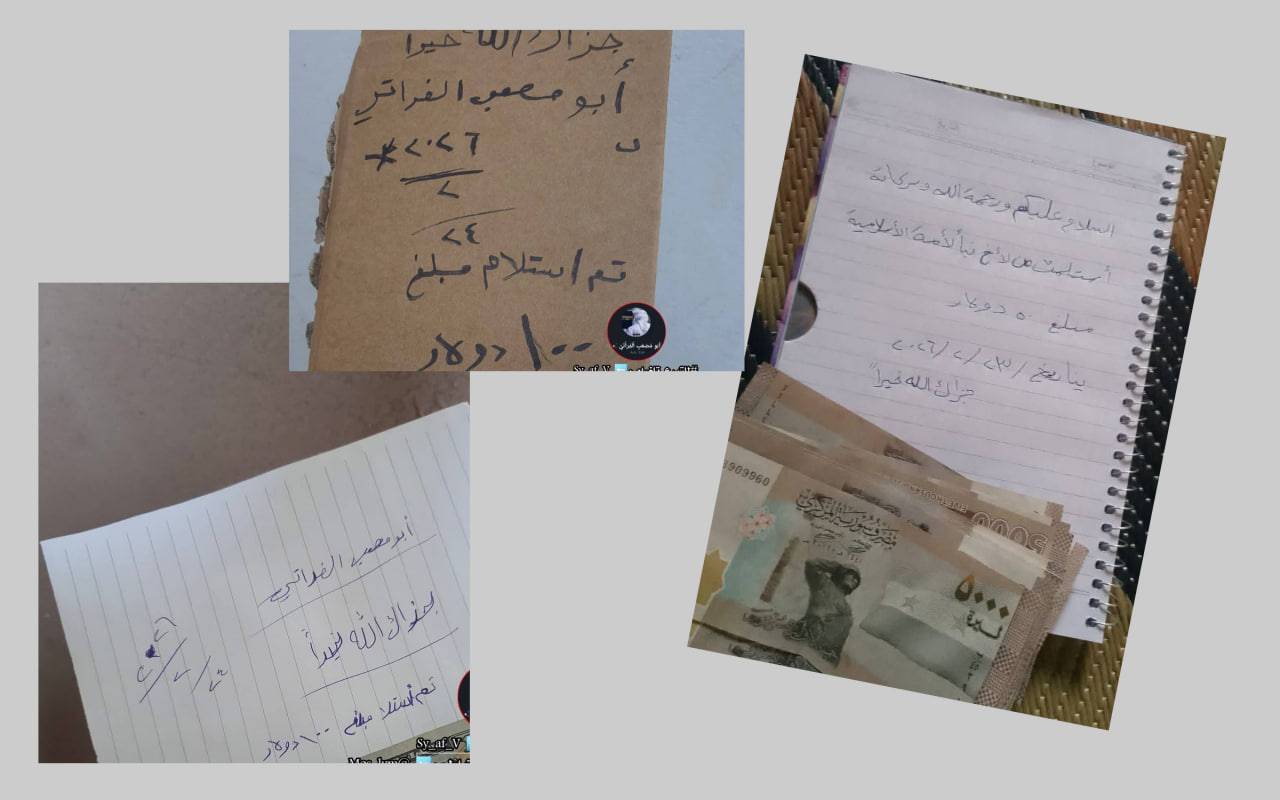 جزاك الله خيرا
أبو مصعب الفراتي
٢٠٢٦
٢
٢٤
تم استلام مبلغ
١٠٠ دولار
ابو مصعب الفراتي
Sy_af_V
السلام عليكم ورحمة الله وبركاته
أستلمت من لأخ نبأ لأمة الأسلامية
مبلغ ٥٠ دولار
بتاريخ /٢٣/ ٢/ ٢٠٢٦
جزاك الله خيراً
909960
مصرف سورية المركزي
5000
٥٠٠٠
ليرة
أبو مصعب الفراتي
جزاك الله خيراً
تم أستلا مبلغ ١٠٠ دولار
Sy_af_V